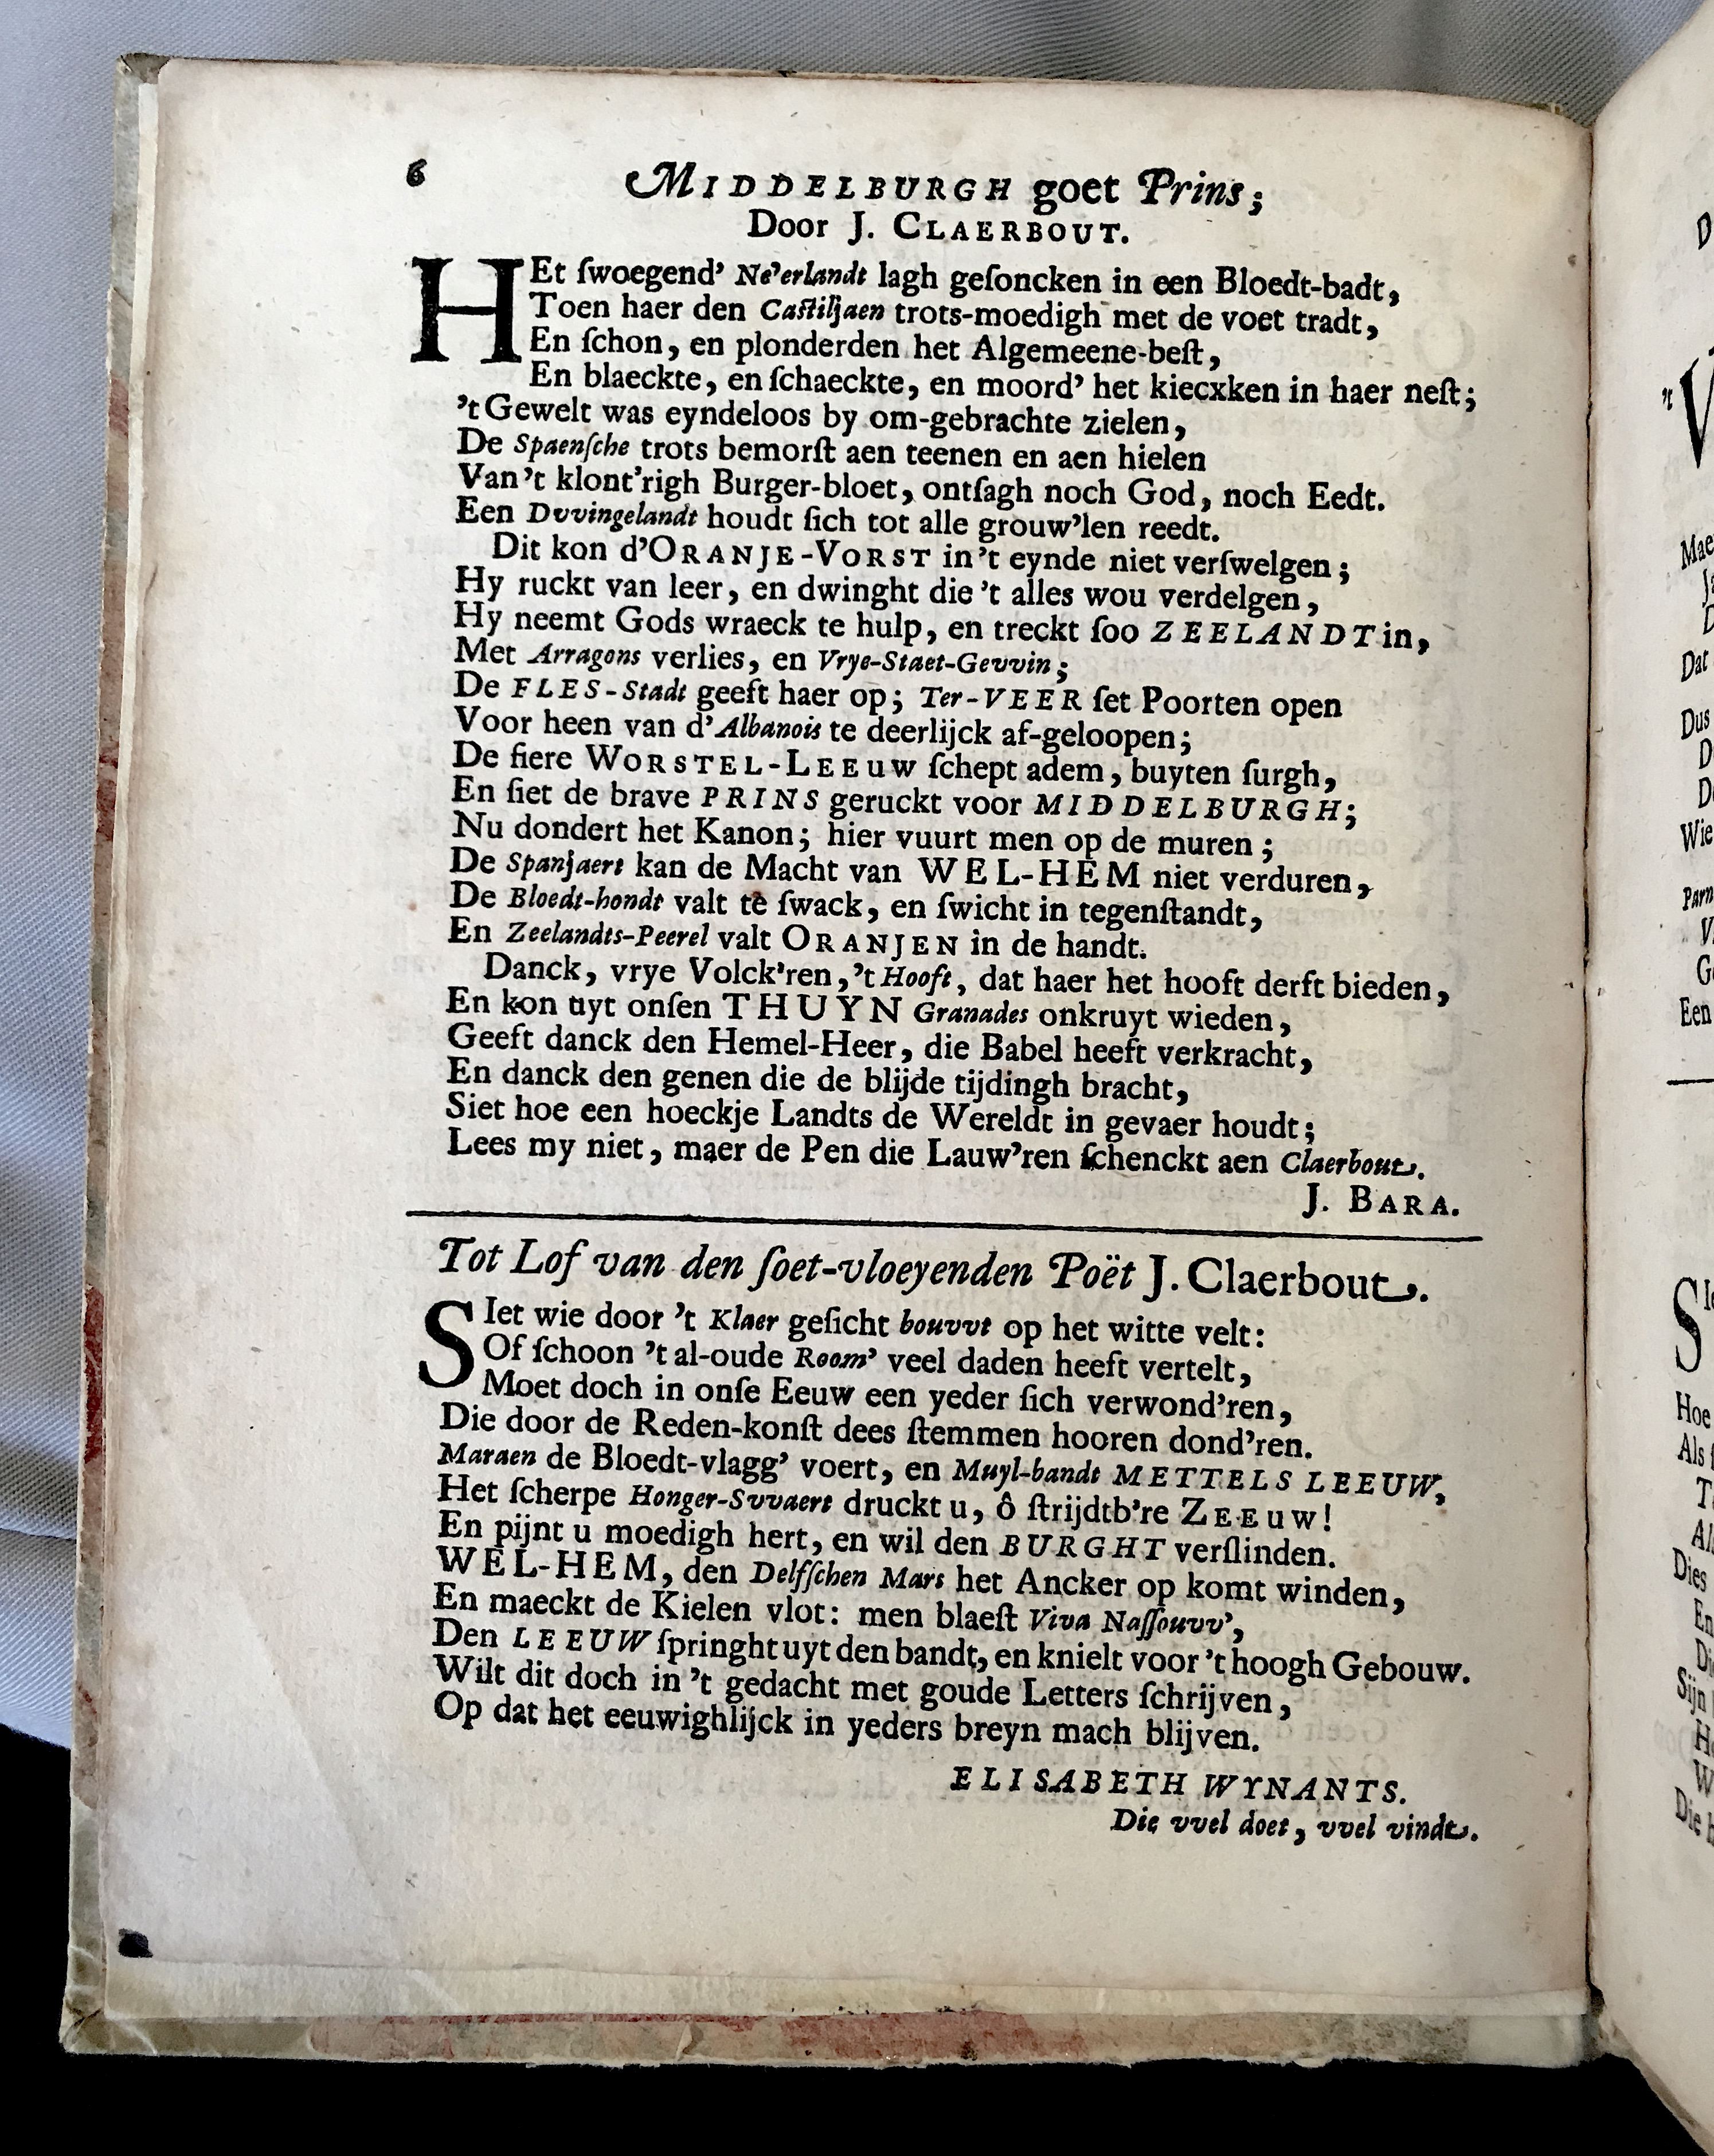 6
MIDDELBURGH goet Prins;
Door J. CLAERBOUT.
HEt ſwoegend' Ne'erlandt lagh geſoncken in een Bloedt-badt,
Toen haer den Caſtiljaen trots-moedigh met de voet tradt,
En ſchon, en plonderden het Algemeene-beſt,
En blaeckte, en ſchaeckte, en moord' het kiecxken in haer neſt;
't Gewelt was eyndeloos by om-gebrachte zielen,
De Spaenſche trots bemorſt aen teenen en aen hielen
Van 't klont'righ Burger-bloet, ontſagh noch God, noch Eedt.
Een Dvvingelandt houdt ſich tot alle grouw'len reedt.
Dit kon d'ORANJE-VORST in 't eynde niet verſwelgen;
Hy ruckt van leer, en dwinght die 't alles wou verdelgen,
Hy neemt Gods wraeck te hulp, en treckt ſoo ZEELANDT in,
Met Arragons verlies, en Vrye-Staet-Gevvin;
De FLES-Stadt geeft haer op; Ter-VEER ſet Poorten open
Voor heen van d'Albanois te deerlijck af-geloopen;
De fiere WORSTEL-LEEuw ſchept adem, buyten ſurgh,
En ſiet de brave PRINS geruckt voor MIDDELBURGH;
Nu dondert het Kanon; hier vuurt men op de muren;
De Spanjaert kan de Macht van WEL-HEM niet verduren,
De Bloedt-hondt valt te ſwack, en ſwicht in tegenſtandt,
En Zeelandts-Peerel valt ORANJEN in de handt.
Danck, vrye Volck'ren, 't Hooft, dat haer het hooft derft bieden,
En kon uyt onſen THUYN Granades onkruyt wieden,
Geeft danck den Hemel-Heer, die Babel heeft verkracht,
En danck den genen die de blijde tijdingh bracht,
Siet hoe een hoeckje Landts de Wereldt in gevaer houdt;
Lees my niet, maer de Pen die Lauw'ren ſchenckt aen Claerbout.
J. BARA.
Tot Lof van den ſoet-vloeyenden Poët J. Claerbout.
SIet wie door 't Klaer geſicht bouvvt op het witte velt:
Of ſchoon 't al-oude Room' veel daden heeft vertelt,
Moet doch in onſe Eeuw een yeder ſich verwond'ren,
Die door de Reden-konſt dees ſtemmen hooren dond'ren.
Maraen de Bloedt-vlagg' voert, en Muyl-bandt METTELS LEEUW,
Het ſcherpe Honger-Svvaert druckt u, ô ſtrijdtb're ZEEuw!
En pijnt u moedigh hert, en wil den BURGHT verſlinden.
WEL-HEM, den Delfſchen Mars het Ancker op komt winden,
En maeckt de Kielen vlot: men blaeſt Viva Naſſouvv',
Den LEEUW ſpringht uyt den bandt, en knielt voor 't hoogh Gebouw.
Wilt dit doch in 't gedacht met goude Letters ſchrijven,
Op dat het eeuwighlijck in yeders breyn mach blijven.
ELISABETH WYNANTS.
Die vvel doet, vvel vindt.